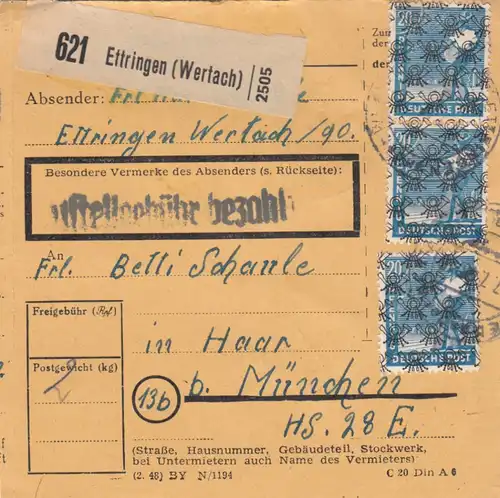 621 Ettringen (Wertach) 2505
Zu
der
de
Absender: Frl
Ettringen Wertach/90.
Besondere Vermerke des Absenders (s. Rückseite):
ustellgebühr bezahl
An
Frl. Betti Schaule
Freigebühr (Rpf)
in Haar
Postgewicht (kg)
2
13b
b. München
HS. 28 E.
(Straße, Hausnummer, Gebäudeteil, Stockwerk,
bei Untermietern auch Name des Vermieters)
(2. 48) BY N/1194
C 20 Din A 6
20
DEUTSCHE POST
DEUTSCHE POST
20
DEUTSCHE POST